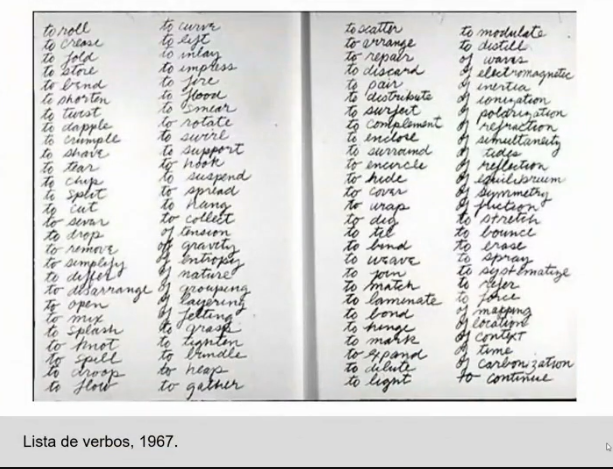 to roll
to crease
to fold
to store
to bend
to shorten
to twist
to dapple
to crumple
to shave
to tear
to chip
to split
to cut
to sever
to drop
to remove
to simplify
to differ
to disarrange
to open
to mix
to splash
to knot
to spill
to droop
to flow
to curve
to lift
to inlay
to impress
to fire
to flood
to smear
to rotate
to swirl
to support
to hook
to suspend
to spread
to hang
to collect
of tension
of gravity
of entropy
of nature
of grouping
of layering
of felting
to grasp
to tighten
to bundle
to heap
to gather
to scatter
to arrange
to repair
to discard
to pair
to distribute
to surfeit
to complement
to enclose
to surround
to encircle
to hide
to cover
to wrap
to dig
to tie
to bind
to weave
to join
to match
to laminate
to bond
to hinge
to mark
to expand
to dilute
to light
to modulate
to distill
of waves
of electromagnetic
of inertia
of ionization
of polarization
of refraction
of simultaneity
of tides
of reflection
of equilibrium
of symmetry
of friction
to stretch
to bounce
to erase
to spray
to systematize
to refer
to force
of mapping
of location
of context
of time
of carbonization
to continue
Lista de verbos, 1967.